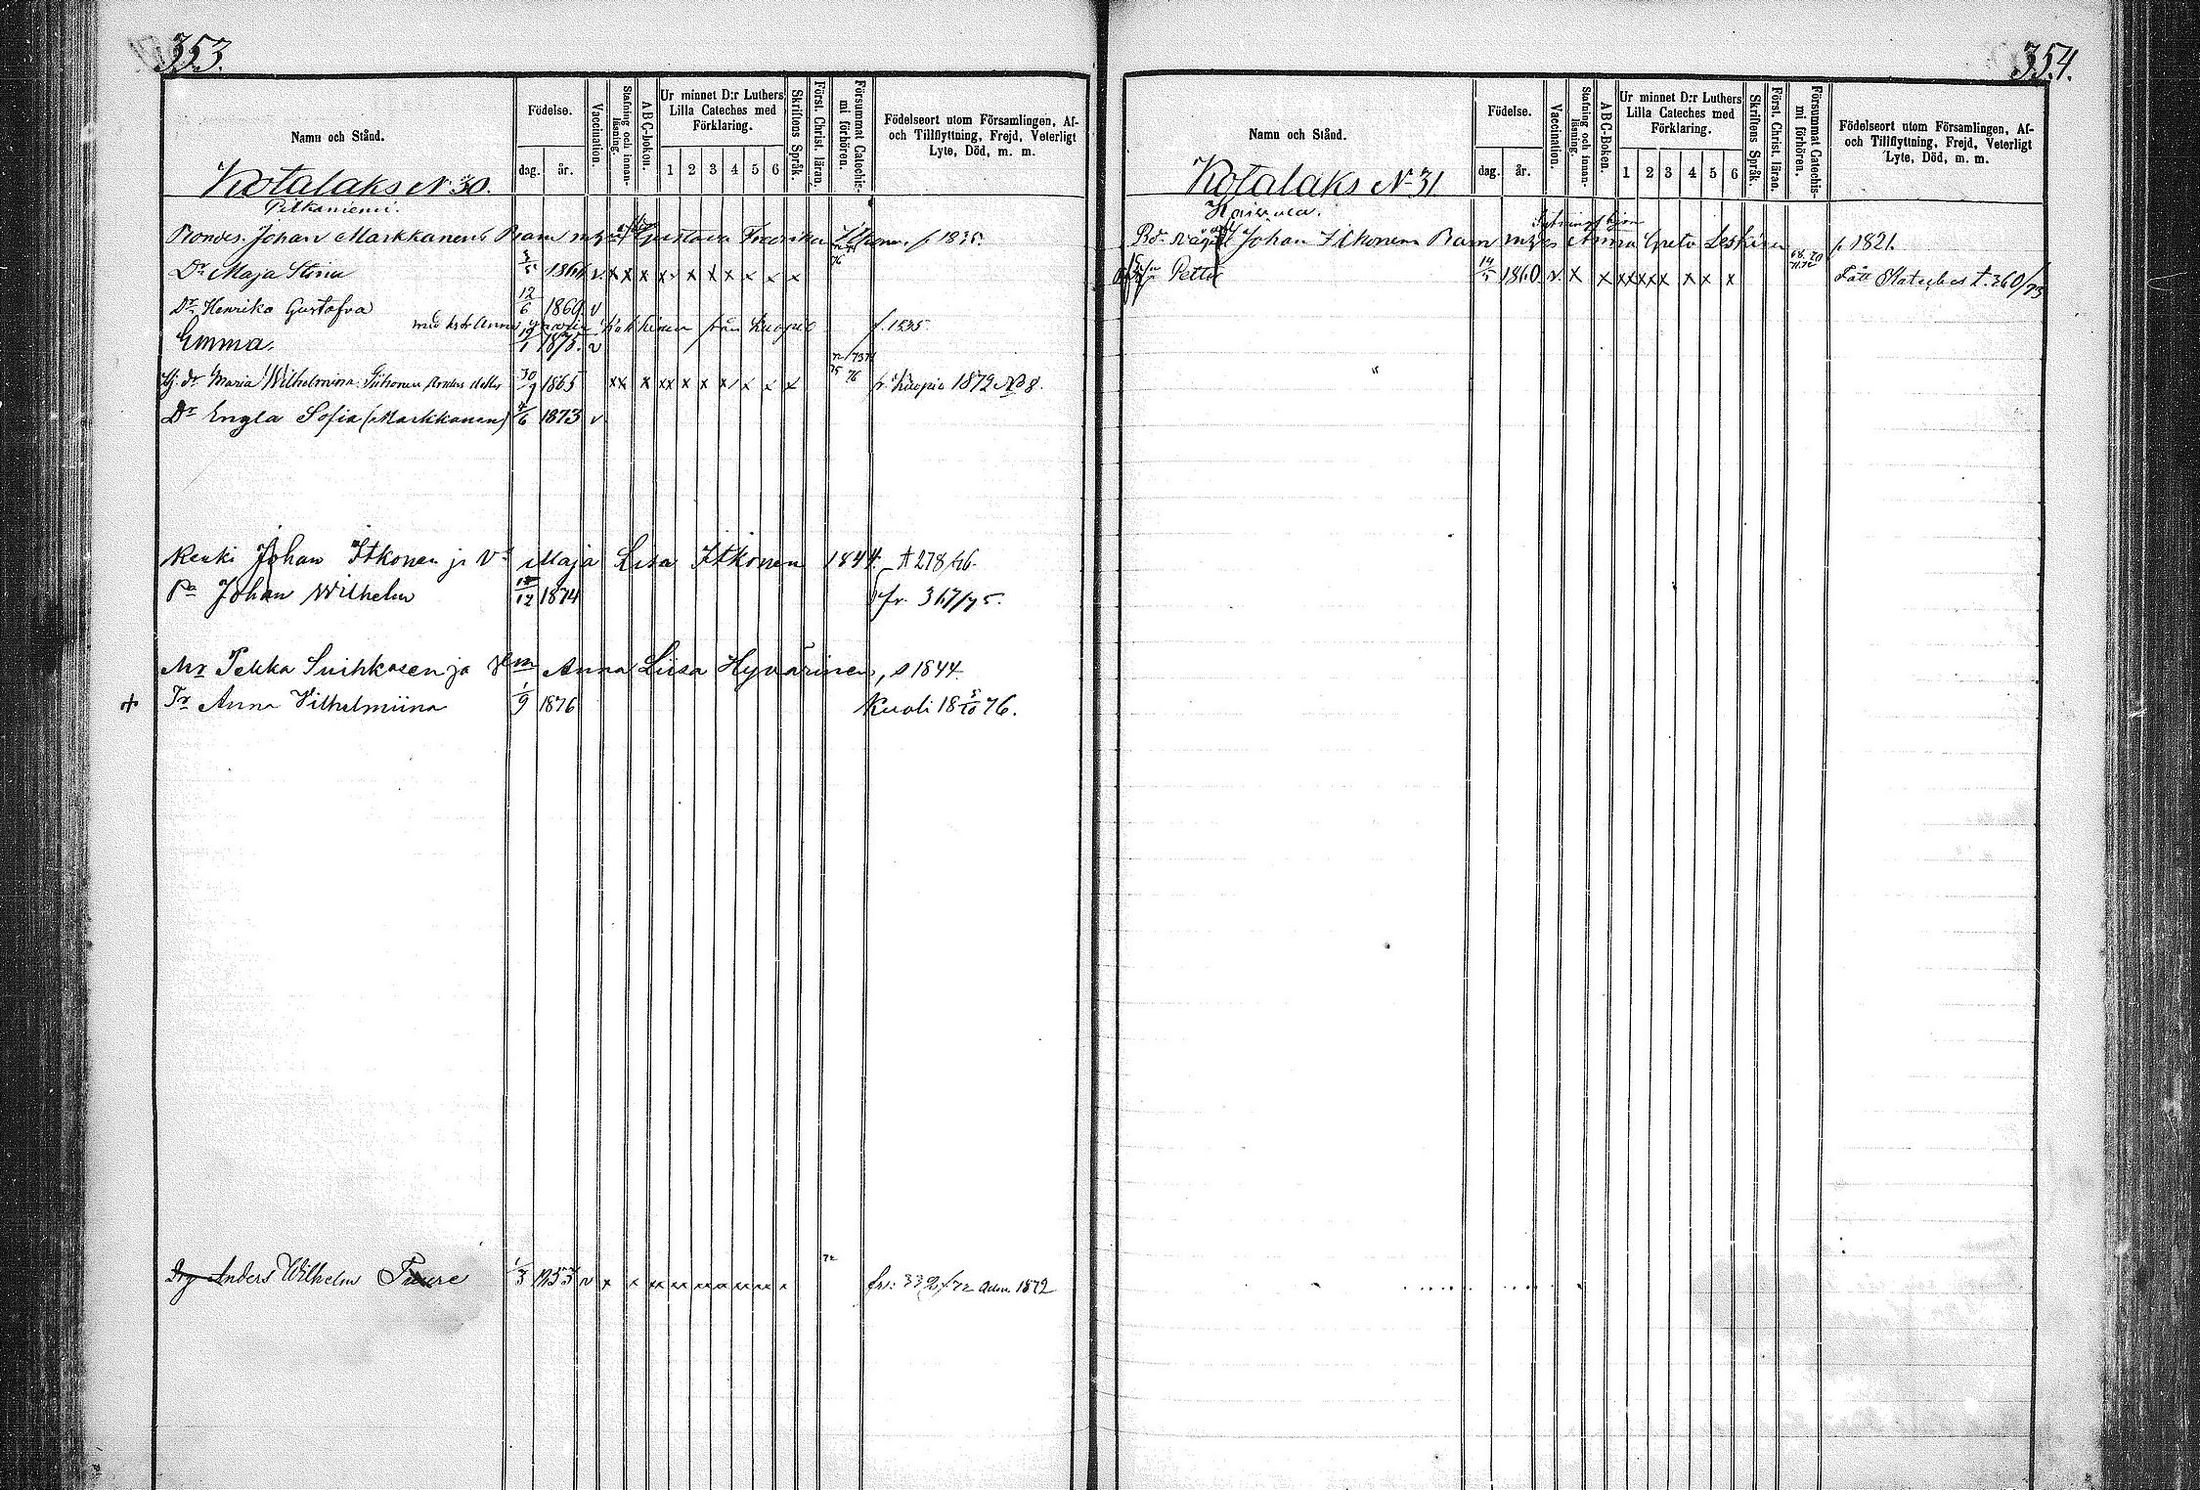 353.
Namn och Stånd.
Födelse.
dag.
år.
Vaccination.
Stafning och innan-
läsning.
ABC-boken.
Ur minnet D:r Luthers
Lilla Cateches med
Förklaring.
1 2 3 4 5 6
Skriftens Språk.
Först. Christ. läran.
Försummat Catechis-
mi förhören.
Födelseort utom Församlingen, Af-
och Tillflyttning, Frejd, Veterligt
Lyte, Död, m. m.
Kotalaks N 30.
Pitkäniemi.
Bondes. Johan Markkanens Barn m Gustava Fredrika Itkonen f 1835.
Dr Maja Stina 3/5 1866 v x x x x x x x x x x
Dr Henrika Gustafva 12/6 1869 v
med hstr Anna Kokkinen från Kuopio f. 1835.
Emma. 19/1 1875. v
Maria Wilhelmina 30/9 1865 x x x x x x x x x x x fr Kuopio 1872 No 8.
Dr Engla Sofia (Markkanen) 6 1873 v
Renki Johan Itkonen ja Vo Maja Lisa Itkonen 1844. t 278/76.
Pa Johan Wilhelm 12 1874 fr. 367/75.
Mr Pekka Suihkosen ja Anna Liisa Hyvärinen, s 1844.
+ Tr Anna Vilhelmiina 1/9 1876 Kuoli 18 5/10 76.
Drg Anders Wilhelm Tuure 1/3 1853 v x x xx xx xx xx xx x 72 fr: 332/72 Adm. 1872
354.
Namn och Stånd.
Födelse.
dag.
år.
Vaccination.
Stafning och innan-
läsning.
ABC-Boken.
Ur minnet D:r Luthers
Lilla Cateches med
Förklaring.
1 2 3 4 5 6
Skriftens Språk.
Först. Christ. läran.
Försummat Catechis-
mi förhören.
Födelseort utom Församlingen, Af-
och Tillflyttning, Frejd, Veterligt
Lyte, Död, m. m.
Kotalaks N 31
Johan Itkonen Barn m Anna Greta Leskinen f 1821.
Petter 14/5 1860 v. x x x x x x x x x x t. 360/73